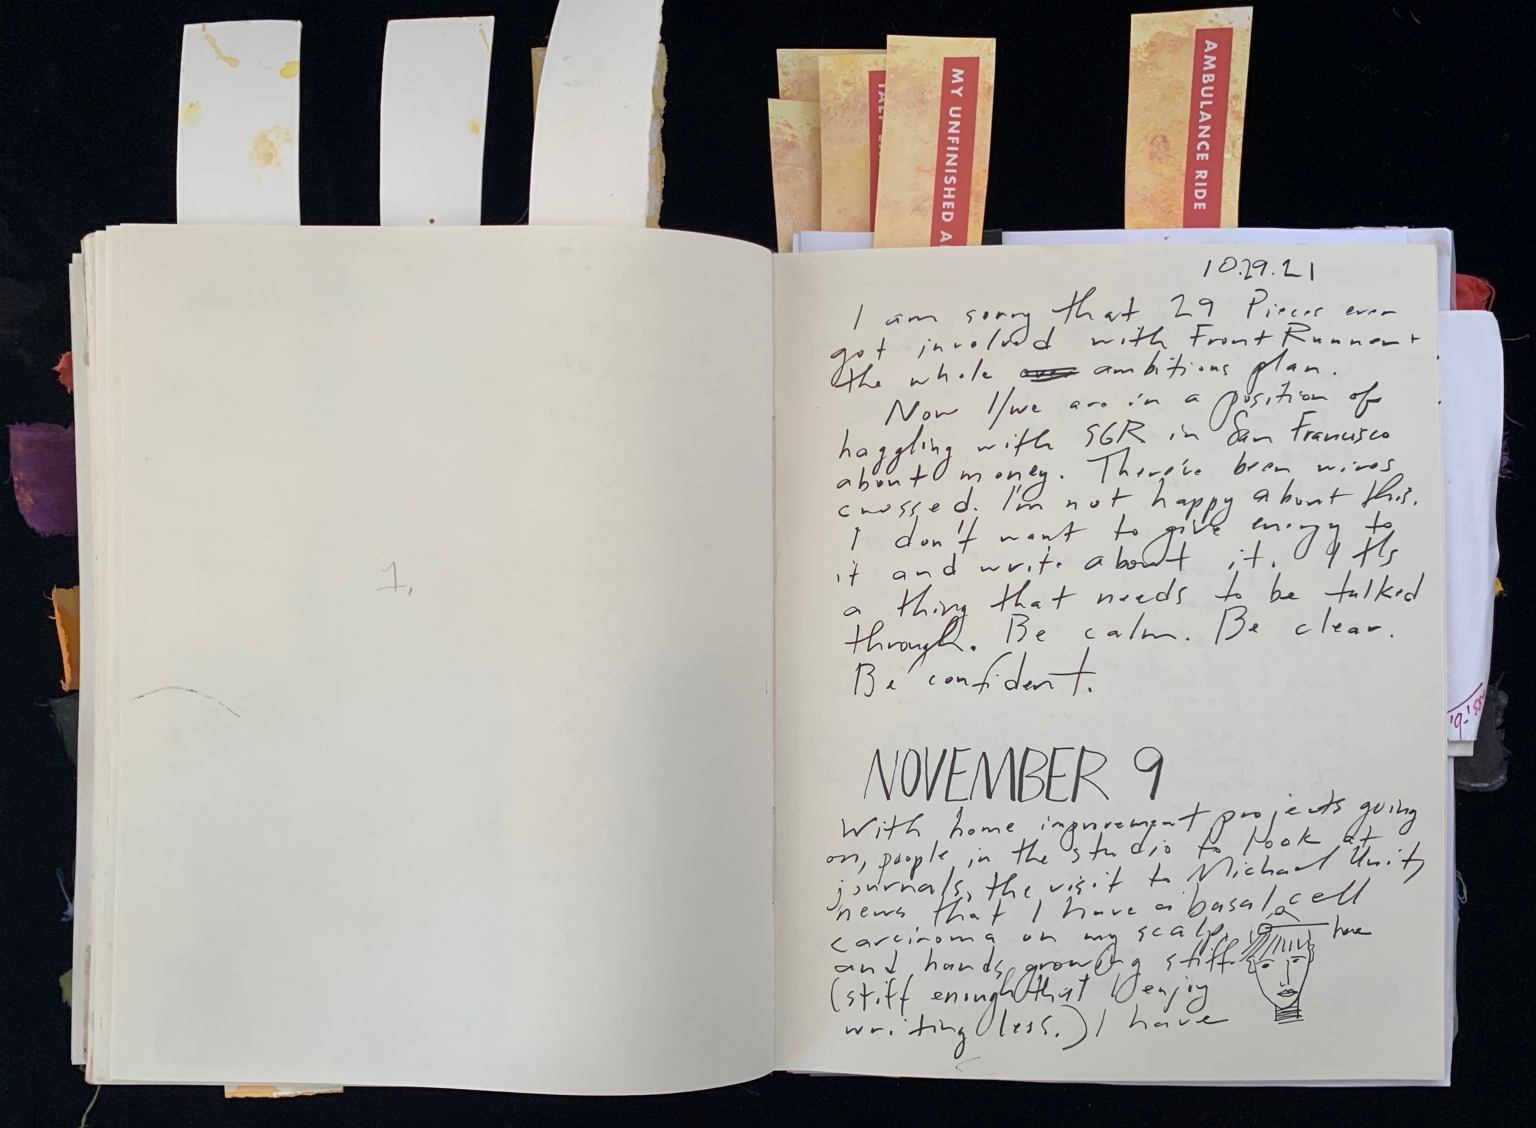 MY UNFINISHED A
AMBULANCE RIDE
1.
10.29.21
I am sorry that 29 Pieces ever
got involved with Front Runner +
the whole ambitious plan.
Now I/we are in a position of
haggling with SGR in San Francisco
about money. There've been wires
crossed. I'm not happy about this.
I don't want to give energy to
it and write about it. It's
a thing that needs to be talked
through. Be calm. Be clear.
Be confident.
NOVEMBER 9
With home improvement projects going
on, people in the studio to look at
journals, the visit to Michael Unit,
news that I have a basal cell
carcinoma on my scalp,
here
and hands growing stiff
(stiff enough that I enjoy
writing less.) I have